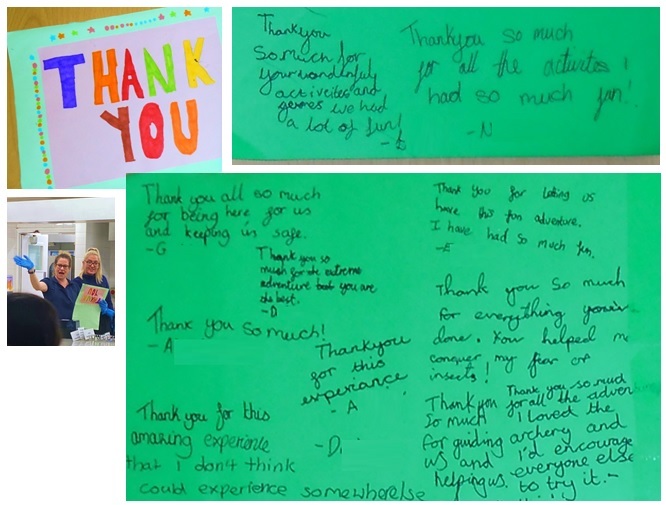 THANK
YOU
Thankyou
So much for
your wondnfuly
activcites and
games we had
a lot of fun!
Thankyou so much
for all the activites i
had so much fun!
-N
Thank you all so much
for being here for us
and keeping us safe.
-G
Thank you so
much for the extreme
adventure boat you are
the best.
-D
Thank you so much!
-A
Thankyou
for this
experiance
-A
Thank you for this
amazing experience
that I don't think
could experience somewhere else
-D.
Thank you for letting us
have this fun adventure.
I have had so much fun.
-E
Thank you So much
for everything
done. You helped me
conquer my fear of
insects!
Thank you
so much
for guiding
us and
helping us.
Thank you so much
for all the adven
I loved the
archery and
I'd encourage
everyone else
to try it.-